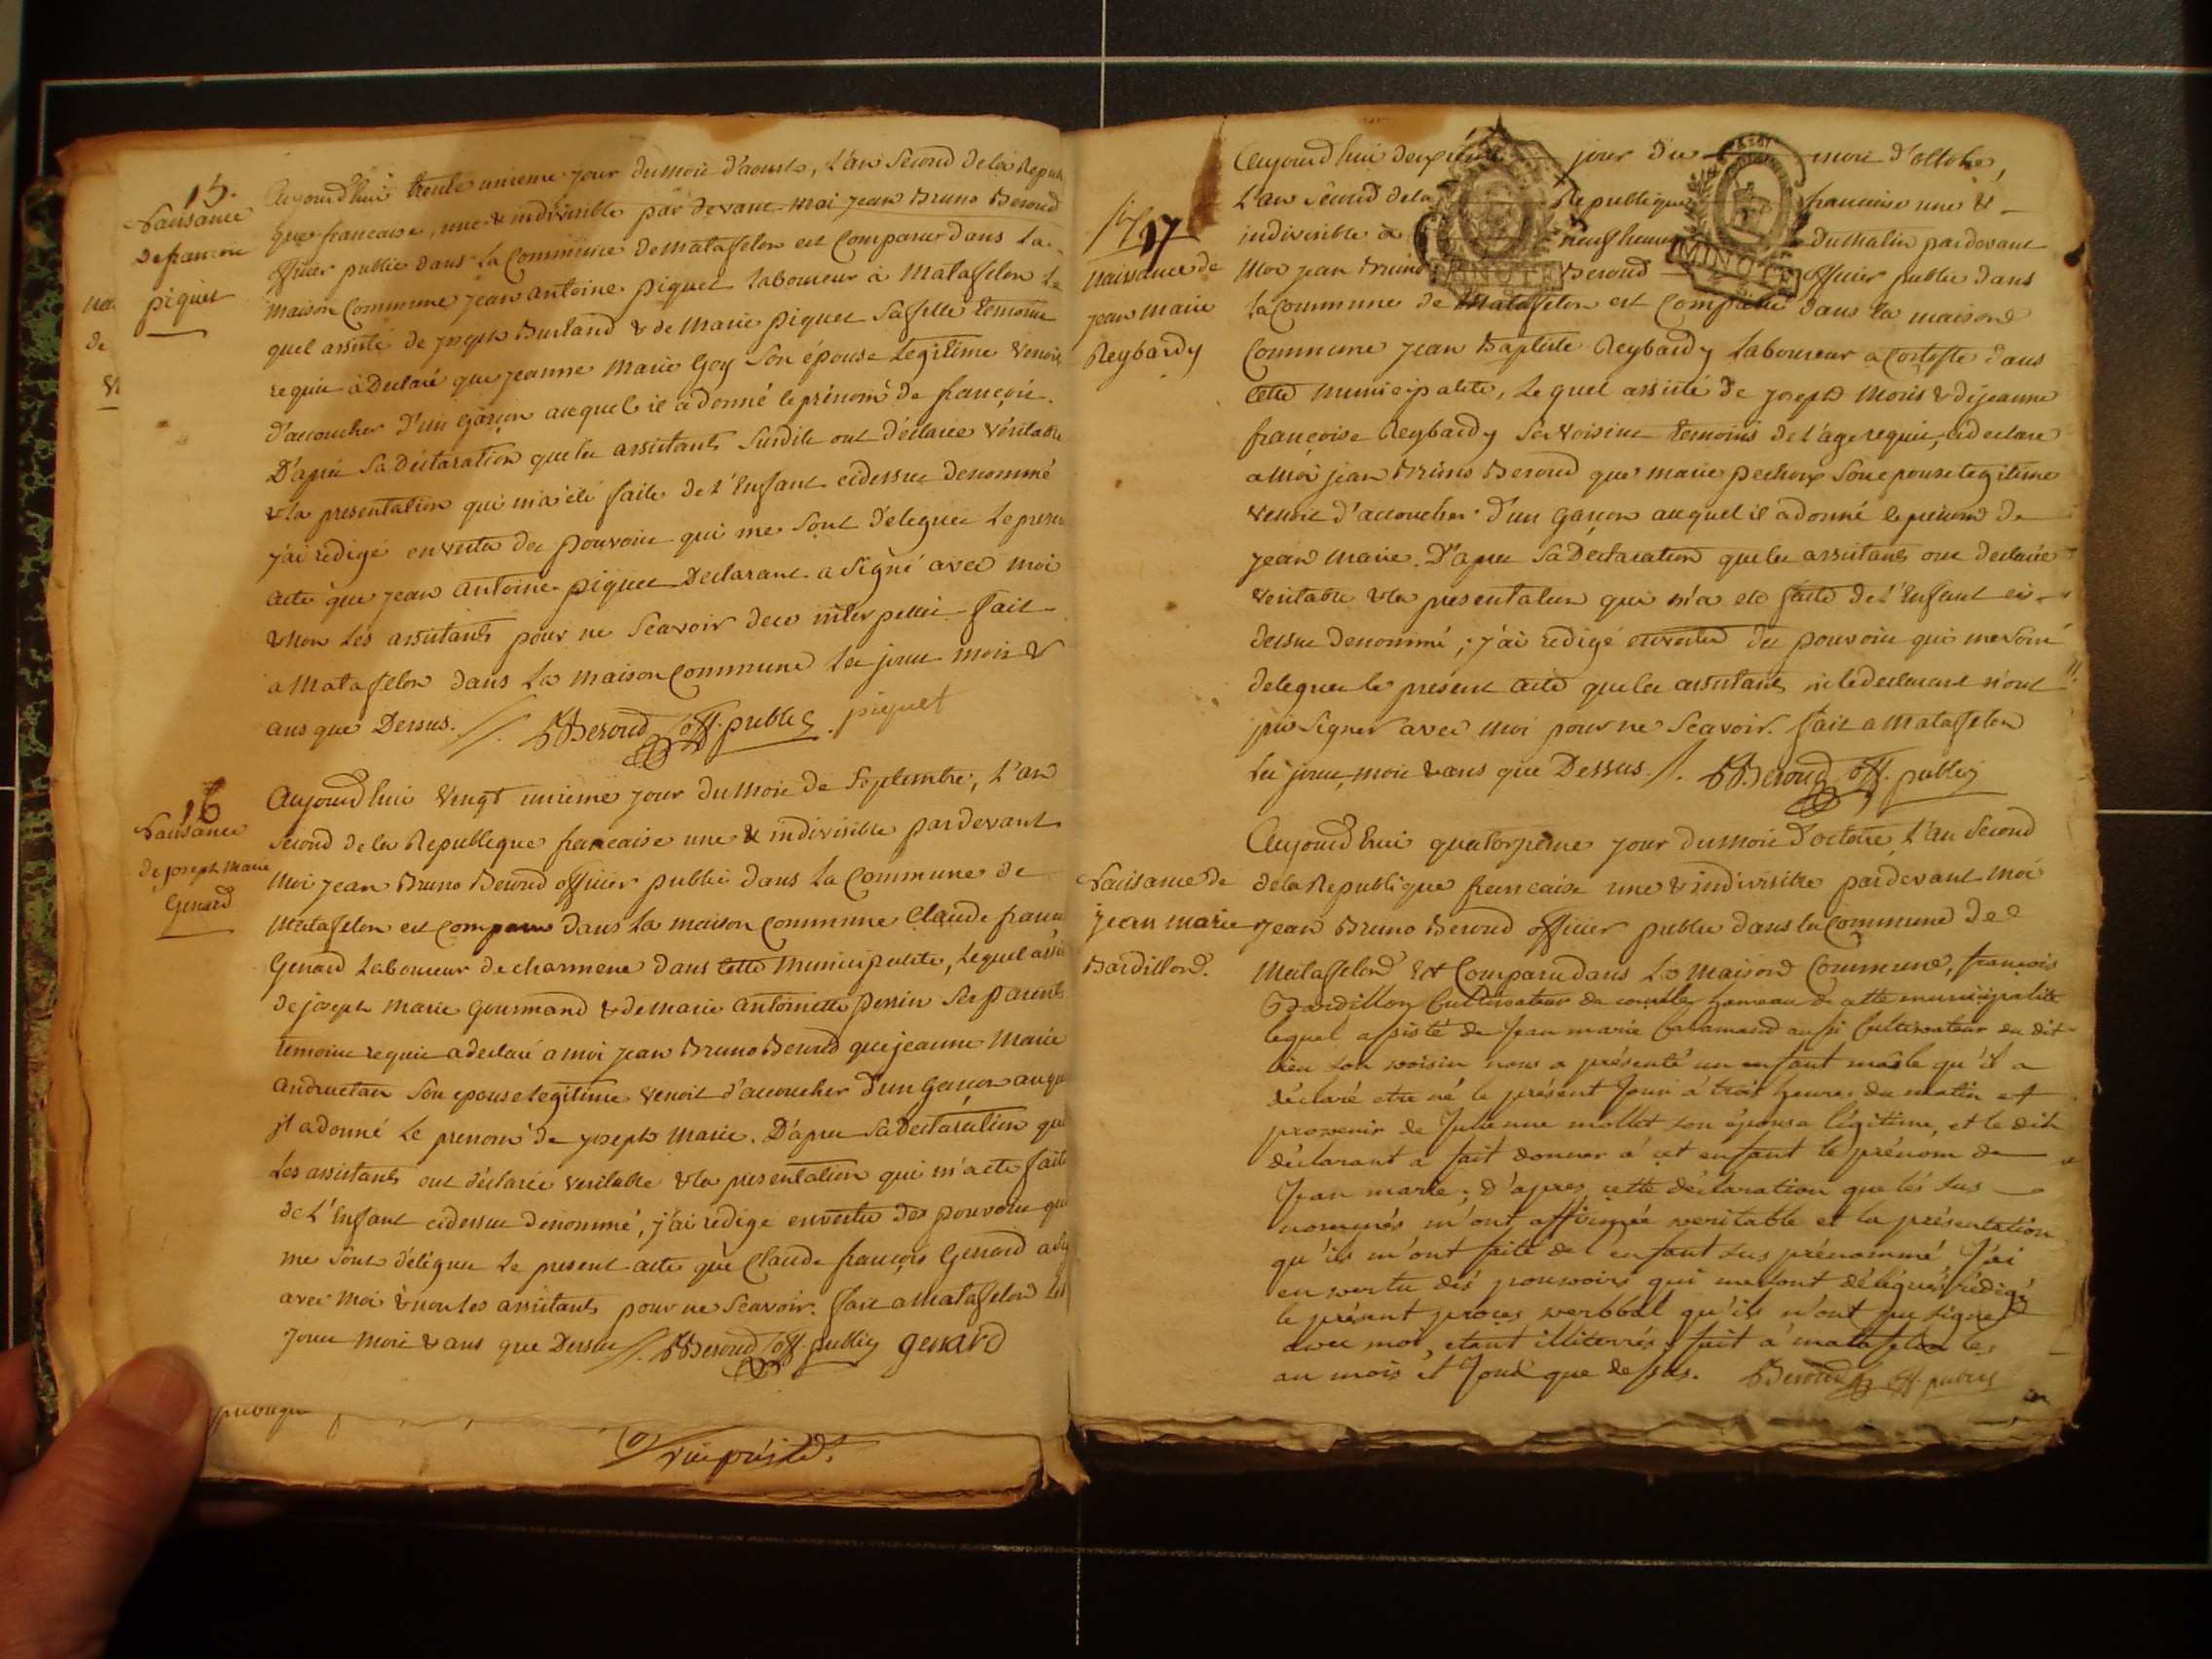 15.
Naissance
de françois
piquet
Aujourd'hui trente unieme jour du mois d'aoust, L'an Second de la Repub
que francaise, une & indivisible par devant moi jean Bruno Beroud
officier public dans La Commune de Matafelon est Comparu dans La
maison Commune jean antoine piquet laboureur à Matafelon Le
quel assisté de joseph Burland & de Marie piquet Sa fille temoins
requis à Declaré que jeanne Marie Goy Son épouse Legitime Venoit
d'accoucher d'un garçon auquel il a donné le prénom de françois.
D'après Sa Déclaration que les assistants Susdits ont déclarée Véritable
& la presentation qui m'a été faite de L'Enfant cidessus denommé
j'ai rédigé en vertu des pouvoirs qui me Sont délegués Le presen
acte que jean antoine piquet Déclarant a Signé avec moi
& non Les assistants pour ne Scavoir de ce interpellés. fait
a Matafelon dans La maison Commune Les jour mois &
ans que Dessus. //. JBBeroud off. public piquet
16
Naissance
de joseph Marie
Genard
Aujourd'hui Vingt unieme jour du mois de Septembre, L'an
Second de la Republique francaise une & indivisible pardevant
Moi jean Bruno Beroud officier public dans La Commune de
Matafelon est comparu dans La maison Commune Claude franc
Genard Laboureur de charmene dans cette Municipalité, Lequel assis
de joseph Marie Gourmand & de Marie antoinette perrin Ses parents
temoins requis a declaré a moi jean Bruno Beroud que jeanne Marie
Son epouse Legitime Venoit d'accoucher d'un Garçon auqu
il a donné Le prenom de joseph Marie. D'apres Sa Declaration que
Les assistants ont déclarée Veritable & la presentation qui m'a ete faite
de L'Enfant cidessus denommé, j'ai redigé en vertu des pouvoirs qui
me Sont délégués Le present acte que Claude françois Genard a Sig
avec moi & non les assistants pour ne Scavoir. fait a Matafelon Les
jour Mois & ans que Dessus //. JBBeroud off. public genard
17
Naissance de
jean Marie
Reybardy
Aujourd'hui deuxième jour du mois d'octobre,
L'an Second de la Republique francaise une &
indivisible à neuf heures du Matin pardevant
Moi jean Bruno Beroud officier public dans
La Commune de Matafelon est Comparu dans La maison
Commune jean Baptiste Reybardy Laboureur a dans
cette Municipalité, Lequel assisté de joseph Moris & de jeanne
françoise Reybardy Ses Voisins temoins de L'age requis, a declaré
a Moi jean Bruno Beroud que Marie pechoux Son epouse legitime
Venoit d'accoucher d'un garçon auquel il a donné le prenom de
jean Marie. D'apres Sa Declaration que les assistants ont declarée
Veritable & la presentation qui m'a eté faite de L'Enfant ci
dessus denommé; j'ai redigé en vertu des pouvoirs qui me Sont
delegués le présent acte que les assistants ni le declarant n'ont
pu Signer avec Moi pour ne Scavoir. fait a Matafelon
Les jour, mois & ans que Dessus. //. JBBeroud off. public
Naissance de
jean marie
Bardillond.
Aujourd'hui quatorzième jour du Mois d'octobre L'an Second
de la Republique francaise une & indivisible pardevant moi
jean Bruno Beroud officier public dans la Commune de
Matafelond est Comparu dans La Maison Commune, françois
Bardillon Cultivateur de hameau de cette municipalité
lequel assisté de Jean marie Calamand aussi Cultivateur du dit
lieu son voisin nous a présenté un enfant mâsle qu'il a
déclaré etre né le présent Jour à trois heures du matin et
provenir de Julienne mollet son épouse légitime, et le dit
déclarant a fait donner à cet enfant le prénom de
Jean marie; d'apres cette déclaration que les sus
nommés m'ont affirmée veritable et la présentation
qu'ils m'ont faite de l'enfant sus prénommé J'ai
en vertu des pouvoirs qui me sont délégués rédigé
le présent proces verbbal qu'ils n'ont pu signer
avec moi, etant illiterrés. fait à matafelon les
an mois et Jour que dessus. Beroud off. public